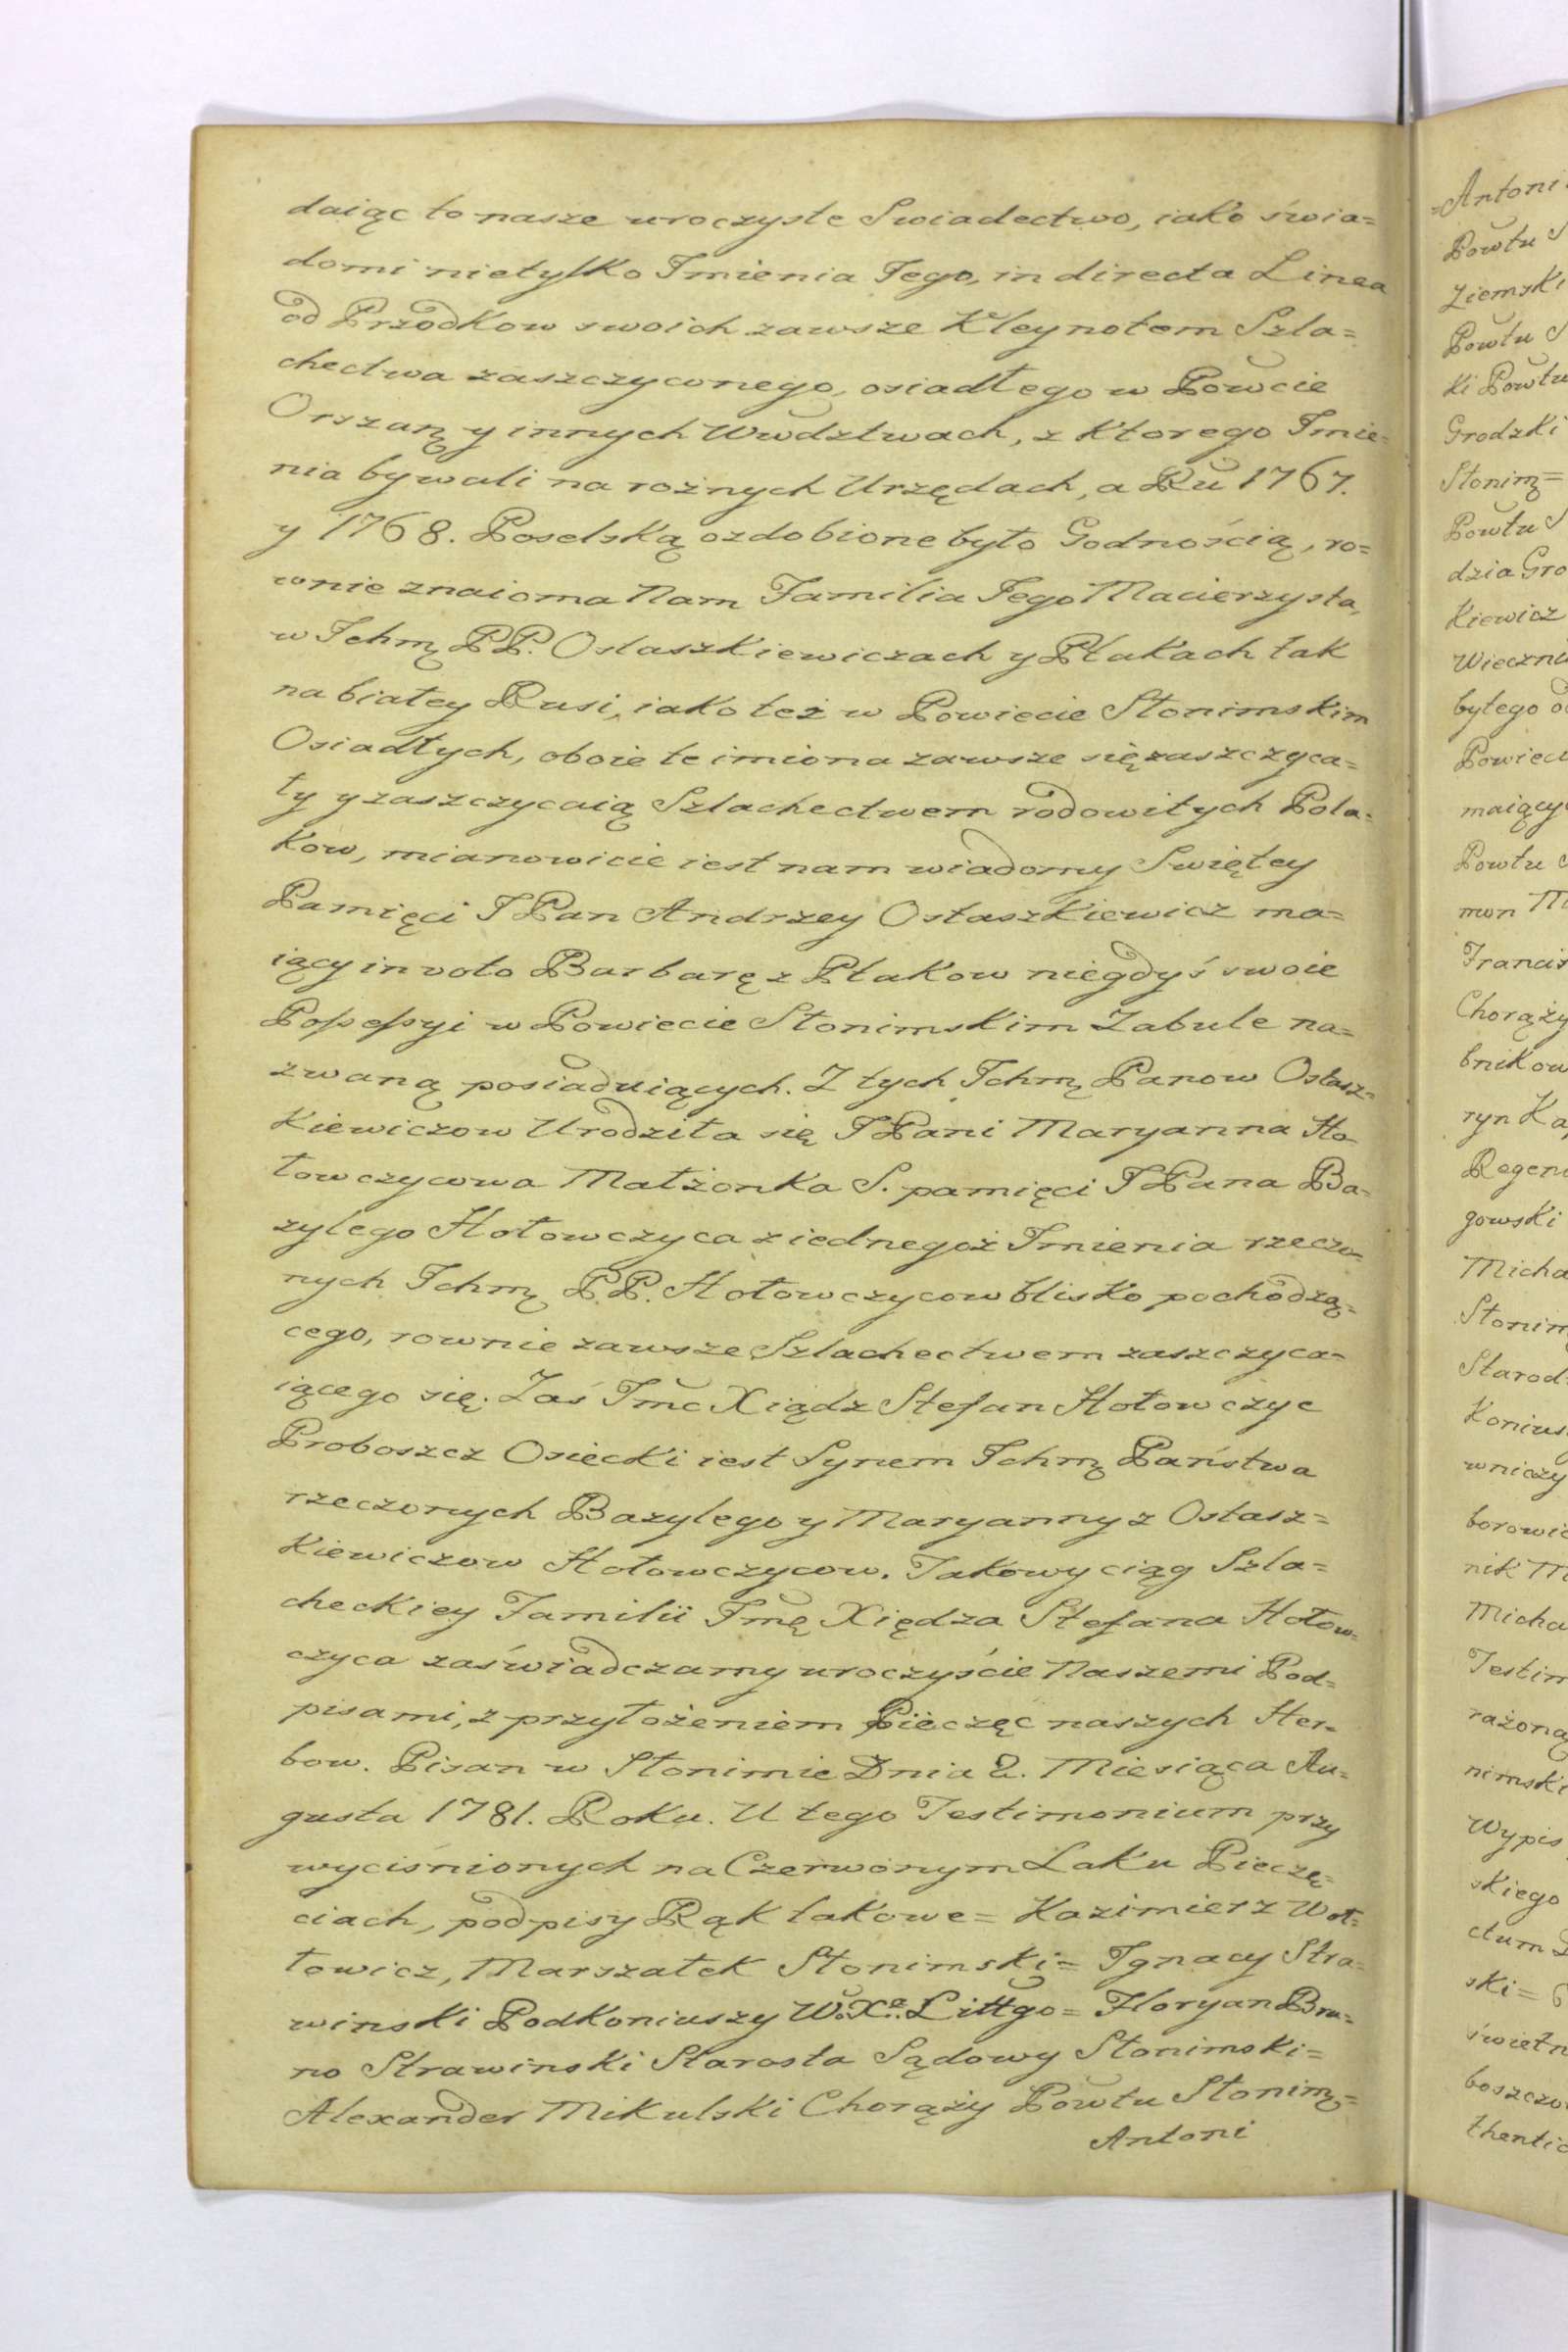 daiąc to nasze uroczyste Swiadectwo, iako świa=
domi nietylko Imienia Iego, in directa Linea
od Przodkow swoich zawsze Kleynotem Szla=
chectwa zaszczyconego, osiadłego w Powcie
Orszanţ y innych Wwdztwach, z Ktorego Imie=
nia bywali na rożnych Urzędach, a Ru 1767.
y 1768. Poselską ozdobione było Godnością, ro=
wnie znaioma Nam Familia Iego Macierzysta,
w Ichmţ PP. Ostaszkiewiczach y Ptakach tak
na białey Rusi, iako też w Powiecie Słonimskim
Osiadłych, oboie te imiona zawsze się zaszczyca=
ły y zaszczycaią Szlachectwem rodowitych Pola=
kow, mianowicie iest nam wiadomy Swiętey
Pamięci IPan Andrzey Ostaszkiewicz ma=
iący in voto Barbarę z Ptakow niegdyś swoie
Possessyi w Powiecie Słonimskim Zabule na=
zwaną posiaduiących. Z tych Ichmţ Panow Ostasz=
kiewiczow Urodziła się IPani Maryanna Ho=
łowczycowa Małżonka S. pamięci IPana Ba=
zylego Hołowczyca z iednegoż Imienia rzeczo=
nych Ichmţ PP. Hołowczycow blisko pochodzą=
cego, rownie zawsze Szlachectwem zaszczyca=
iącego się. Zaś Imc Xiądz Stefan Hołowczyc
Proboszcz Osiecki iest Synem Ichmţ Państwa
rzeczonych Bazylego y Maryanny z Ostasz=
kiewiczow Hołowczycow. Takowy ciąg Szla=
checkiey Familii Imţ Xiędza Stefana Hołow=
czyca zaświadczamy uroczyście Naszemi Pod=
pisami, z przyłożeniem Pieczęć naszych Her=
bow. Pisan w Słonimie Dnia 2. Miesiąca Au=
gusta 1781. Roku. U tego Testimonium przy
wyciśnionych na Czerwonym Laku Pieczę=
ciach, podpisy Rąk takowe = Kazimierz Woł=
łowicz, Marszałek Słonimski = Ignacy Stra=
winski Podkoniuszy W. Xa. Littgo = Floryan Bru=
no Strawinski Starosta Sądowy Słonimski =
Alexander Mikulski Chorąży Powtu Słonimţ =
Antoni
=Antoni
Powtu S
Ziemski
Powtu S
ki Powtu
Grodzki
Słonimţ =
Powtu S
dzia Gro
kiewicz
Wieczn
byłego o
Powiec
maiący
Powtu
mon M
Francis
Chorąży
bnikow
ryn Ka
Regen
gowski
Micha
Słonim
Starod
Konius
wniczy
borowic
nik M
Micha
Testim
rażoną
nimski
Wypis
skiego
ctum
ski =
świetn
boszczo
thentic